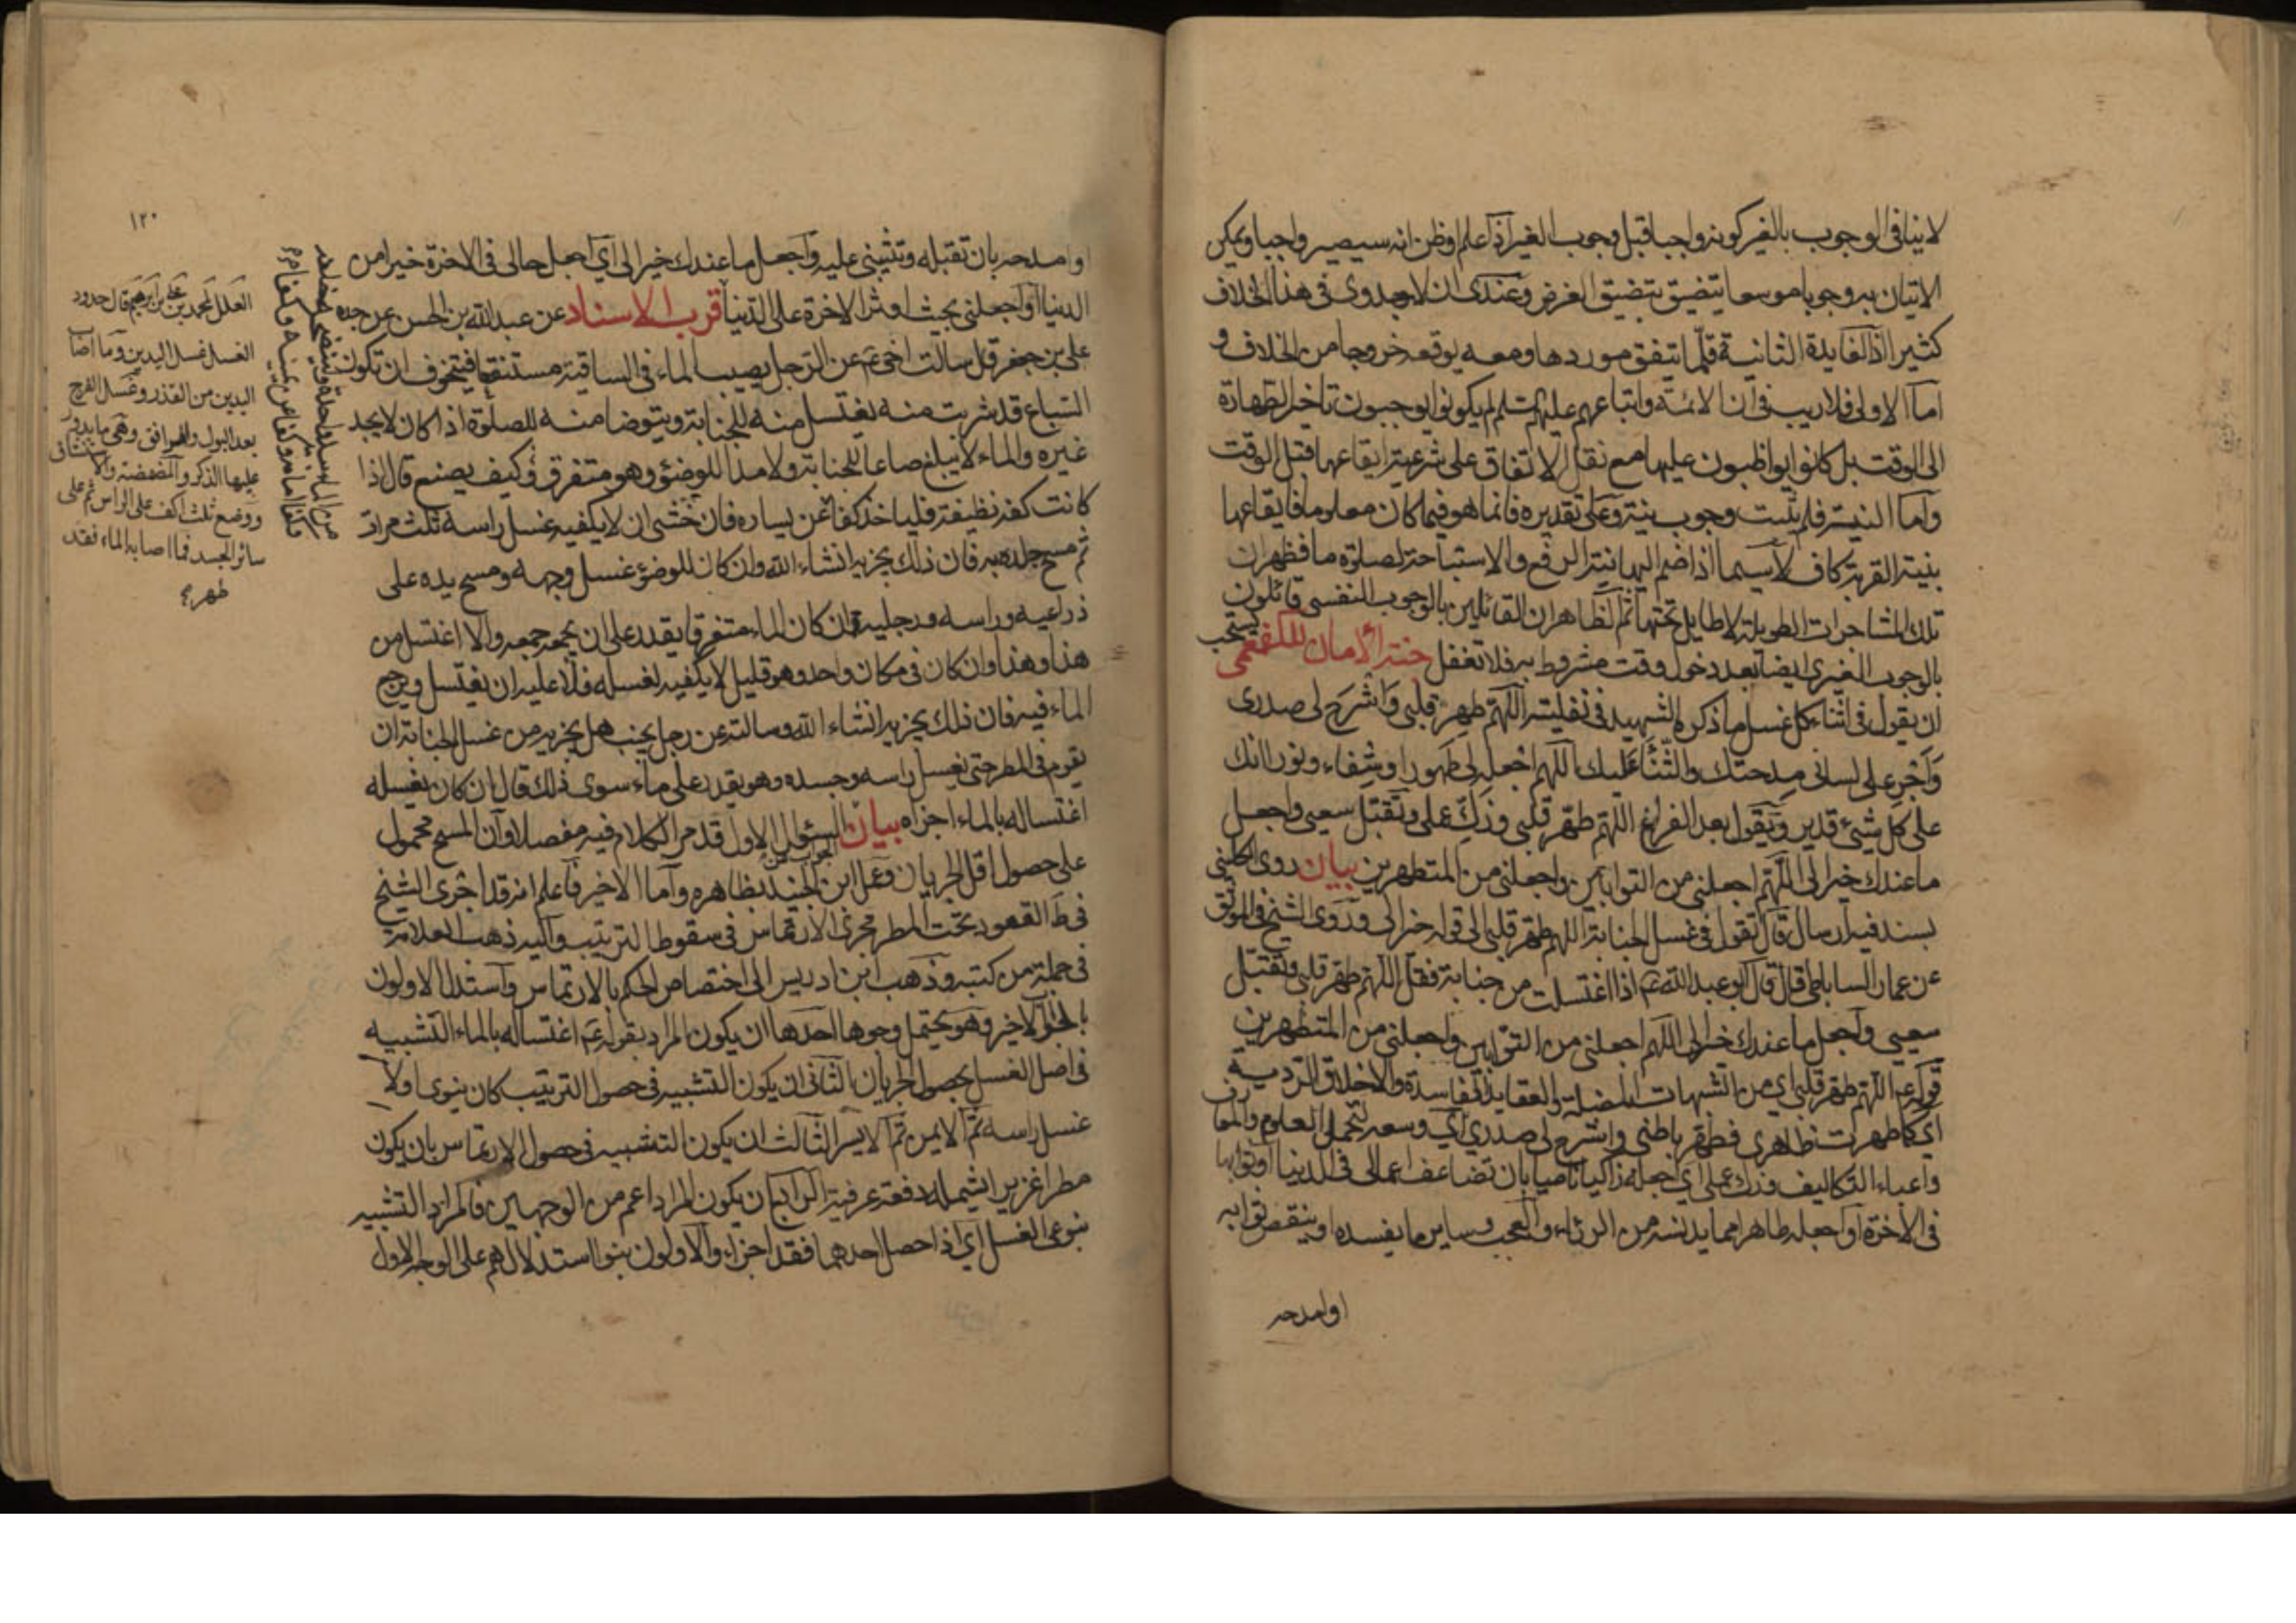 لاينافي الوجوب بالغير كونه واجبا قبل وجوب الغير اذا علم او ظن انه سيصير واجبا ويمكن
الاتيان به وجوبا موسعا يتضيق بتضيق الغرض وعندى ان لاجدوى فى هذا الخلاف
كثيرا اذ الفايدة الثانية قلما يتفق موردها ومعه يوقعه خروجا من الخلاف و
اما الاولى فلا ريب فى ان الائمة واتباعهم عليهم السلم لم يكونوا يوجبون تاخير الطهارة
الى الوقت بل كانوا يواظبون عليها مع نقل الاتفاق على شرعية ايقاعها قبل الوقت
واما النية فلم يثبت وجوب نية وعلى تقديره فانما هو فيما كان معلوما فايقاعها
بنية القربة كاف لاسيما اذا ضم اليها نية الرفع والاستباحة لصلوة ما فظهر ان
تلك المشاجرات الطويلة لا طايل تحتها ثم الظاهر ان القائلين بالوجوب النفسى قائلون
بالوجوب الغيرى ايضا بعد دخول وقت مشروط به فلا تغفل جنة الامان للكفعمى يستحب
ان يقول فى اثناء كل غسل ما ذكره الشهيد فى نفليته اللهم طهر قلبى واشرح لى صدرى
وأجر على لسانى مدحتك والثناء عليك اللهم اجعله لى طهورا وشفاء ونورا انك
على كل شىء قدير ويقول بعد الفراغ اللهم طهر قلبى وزك عملى وتقبل سعيى واجعل
ما عندك خيرا لى اللهم اجعلنى من التوابين واجعلنى من المتطهرين بيان روى الكلينى
بسند فيه ارسال قال تقول فى غسل الجنابة اللهم طهر قلبى الى قوله خيرا لى وروى الشيخ فى الموثق
عن عمار الساباطى قال قال ابو عبد الله ع اذا اغتسلت من جنابة فقل اللهم طهر قلبى وتقبل
سعيى واجعل ما عندك خيرا لى اللهم اجعلنى من التوابين واجعلنى من المتطهرين
قوله ع اللهم طهر قلبى اى من الشبهات المضلة والعقايد الفاسدة والاخلاق الردية
اى كما طهرت ظاهرى فطهر باطنى واشرح لى صدرى اى وسعه لتحمل العلوم والمعارف
واعباء التكاليف وزك عملى اى اجعله زاكيا ناميا بان تضاعف اعمالى فى الدنيا او ثوابها
فى الآخرة او اجعله طاهرا مما يدنسه من الرئاء والعجب وساير ما يفسده او ينقص ثوابه
او امدحه
١٢٠
او امدحه بان تقبله وتثيبنى عليه واجعل ما عندك خيرا لى اى اجعل حالى فى الاخرة خيرا من
الدنيا او اجعلنى بحيث اوثر الاخرة على الدنيا قرب الاسناد عن عبد الله بن الحسن عن جده
على بن جعفر قال سالت اخى ع عن الرجل يصيب الماء فى الساقية مستنقعا فيتخوف ان تكون
السباع قد شربت منه يغتسل منه للجنابة ويتوضا منه للصلوة اذا كان لا يجد
غيره والماء لا يبلغ صاعا للجنابة ولا مدا للوضؤ وهو متفرق وكيف يصنع قال اذا
كانت كفه نظيفة فلياخذ كفا عن يساره فان خشى ان لا يكفيه غسل راسه ثلث مرات
ثم مسح جلده به فان ذلك يجزيه انشاء الله وان كان للوضؤ غسل وجهه ومسح يده على
ذراعيه وراسه ورجليه وان كان الماء متفرقا يقدر على ان يجمعه جمعه والا اغتسل من
هذا وهذا وان كان فى مكان واحد وهو قليل لا يكفيه لغسله فلا عليه ان يغتسل ويرجع
الماء فيه فان ذلك يجزيه انشاء الله وسالته عن رجل يجنب هل يجزيه من غسل الجنابة ان
يقوم فى المطر حتى يغسل راسه وجسده وهو يقدر على ماء سوى ذلك قال ان كان يغسله
اغتساله بالماء اجزاه بيان السؤال الاول قد مر الكلام فيه مفصلا وان المسح محمول
على حصول اقل الجريان وعمل ابن الجنيد بظاهره واما الاخير فاعلم انه قد اجرى الشيخ
فى ط القعود تحت المطر مجرى الارتماس فى سقوط الترتيب واليه ذهب العلامة
فى جملة من كتبه وذهب ابن ادريس الى اختصاص الحكم بالارتماس واستدل الاولون
بالخبر الاخير وهو يحتمل وجوها احدها ان يكون المراد بقوله ع اغتساله بالماء التشبيه
فى اصل الغسل بحصول الجريان الثانى ان يكون التشبيه فى حصول الترتيب كان ينوى اولا
غسل راسه ثم الايمن ثم الايسر الثالث ان يكون التشبيه فى حصول الارتماس بان يكون
مطرا غزيرا يشمله دفعة عرفية الرابع ان يكون المراد اعم من الوجهين فالمراد التشبيه
بنوعى الغسل اى اذا حصل احدهما فقد اجزاء والاولون بنوا استدلالهم على الوجه الاول
العلل لمحمد بن على بن ابرهيم قال حدود
الغسل غسل اليدين وما اصاب
اليدين من القذر وغسل الفرج
بعد البول والمرافق وهى ما يدور
عليها الذكر والمضمضة والاستنشاق
ووضع ثلث اكف على الراس ثم على
سائر الجسد فما اصابه الماء فقد
طهر